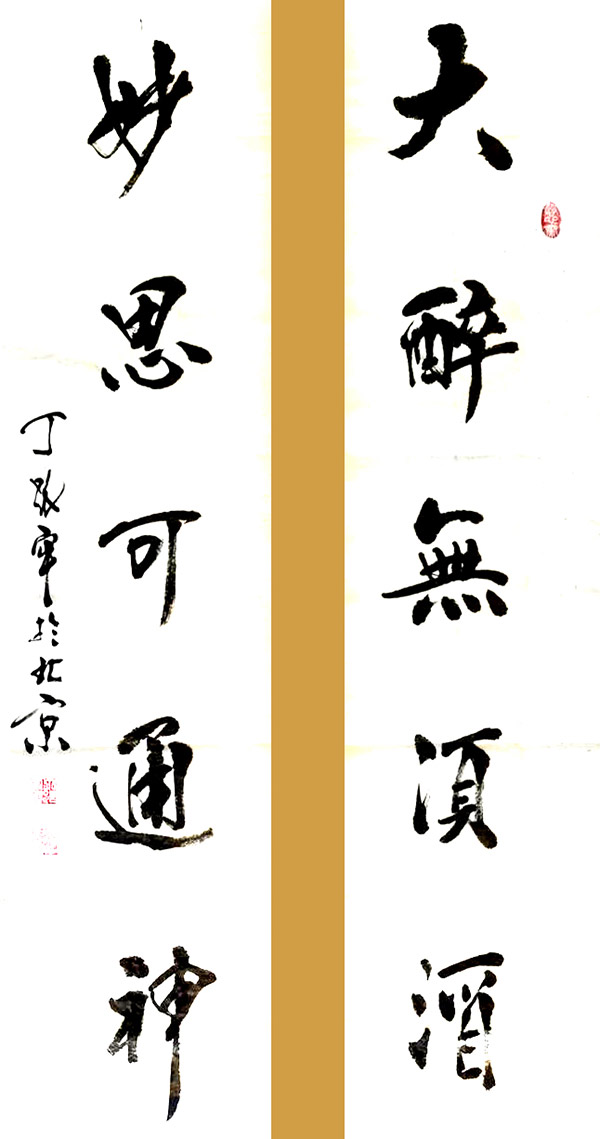 大醉無須酒
妙思可通神
丁敬軍於北京